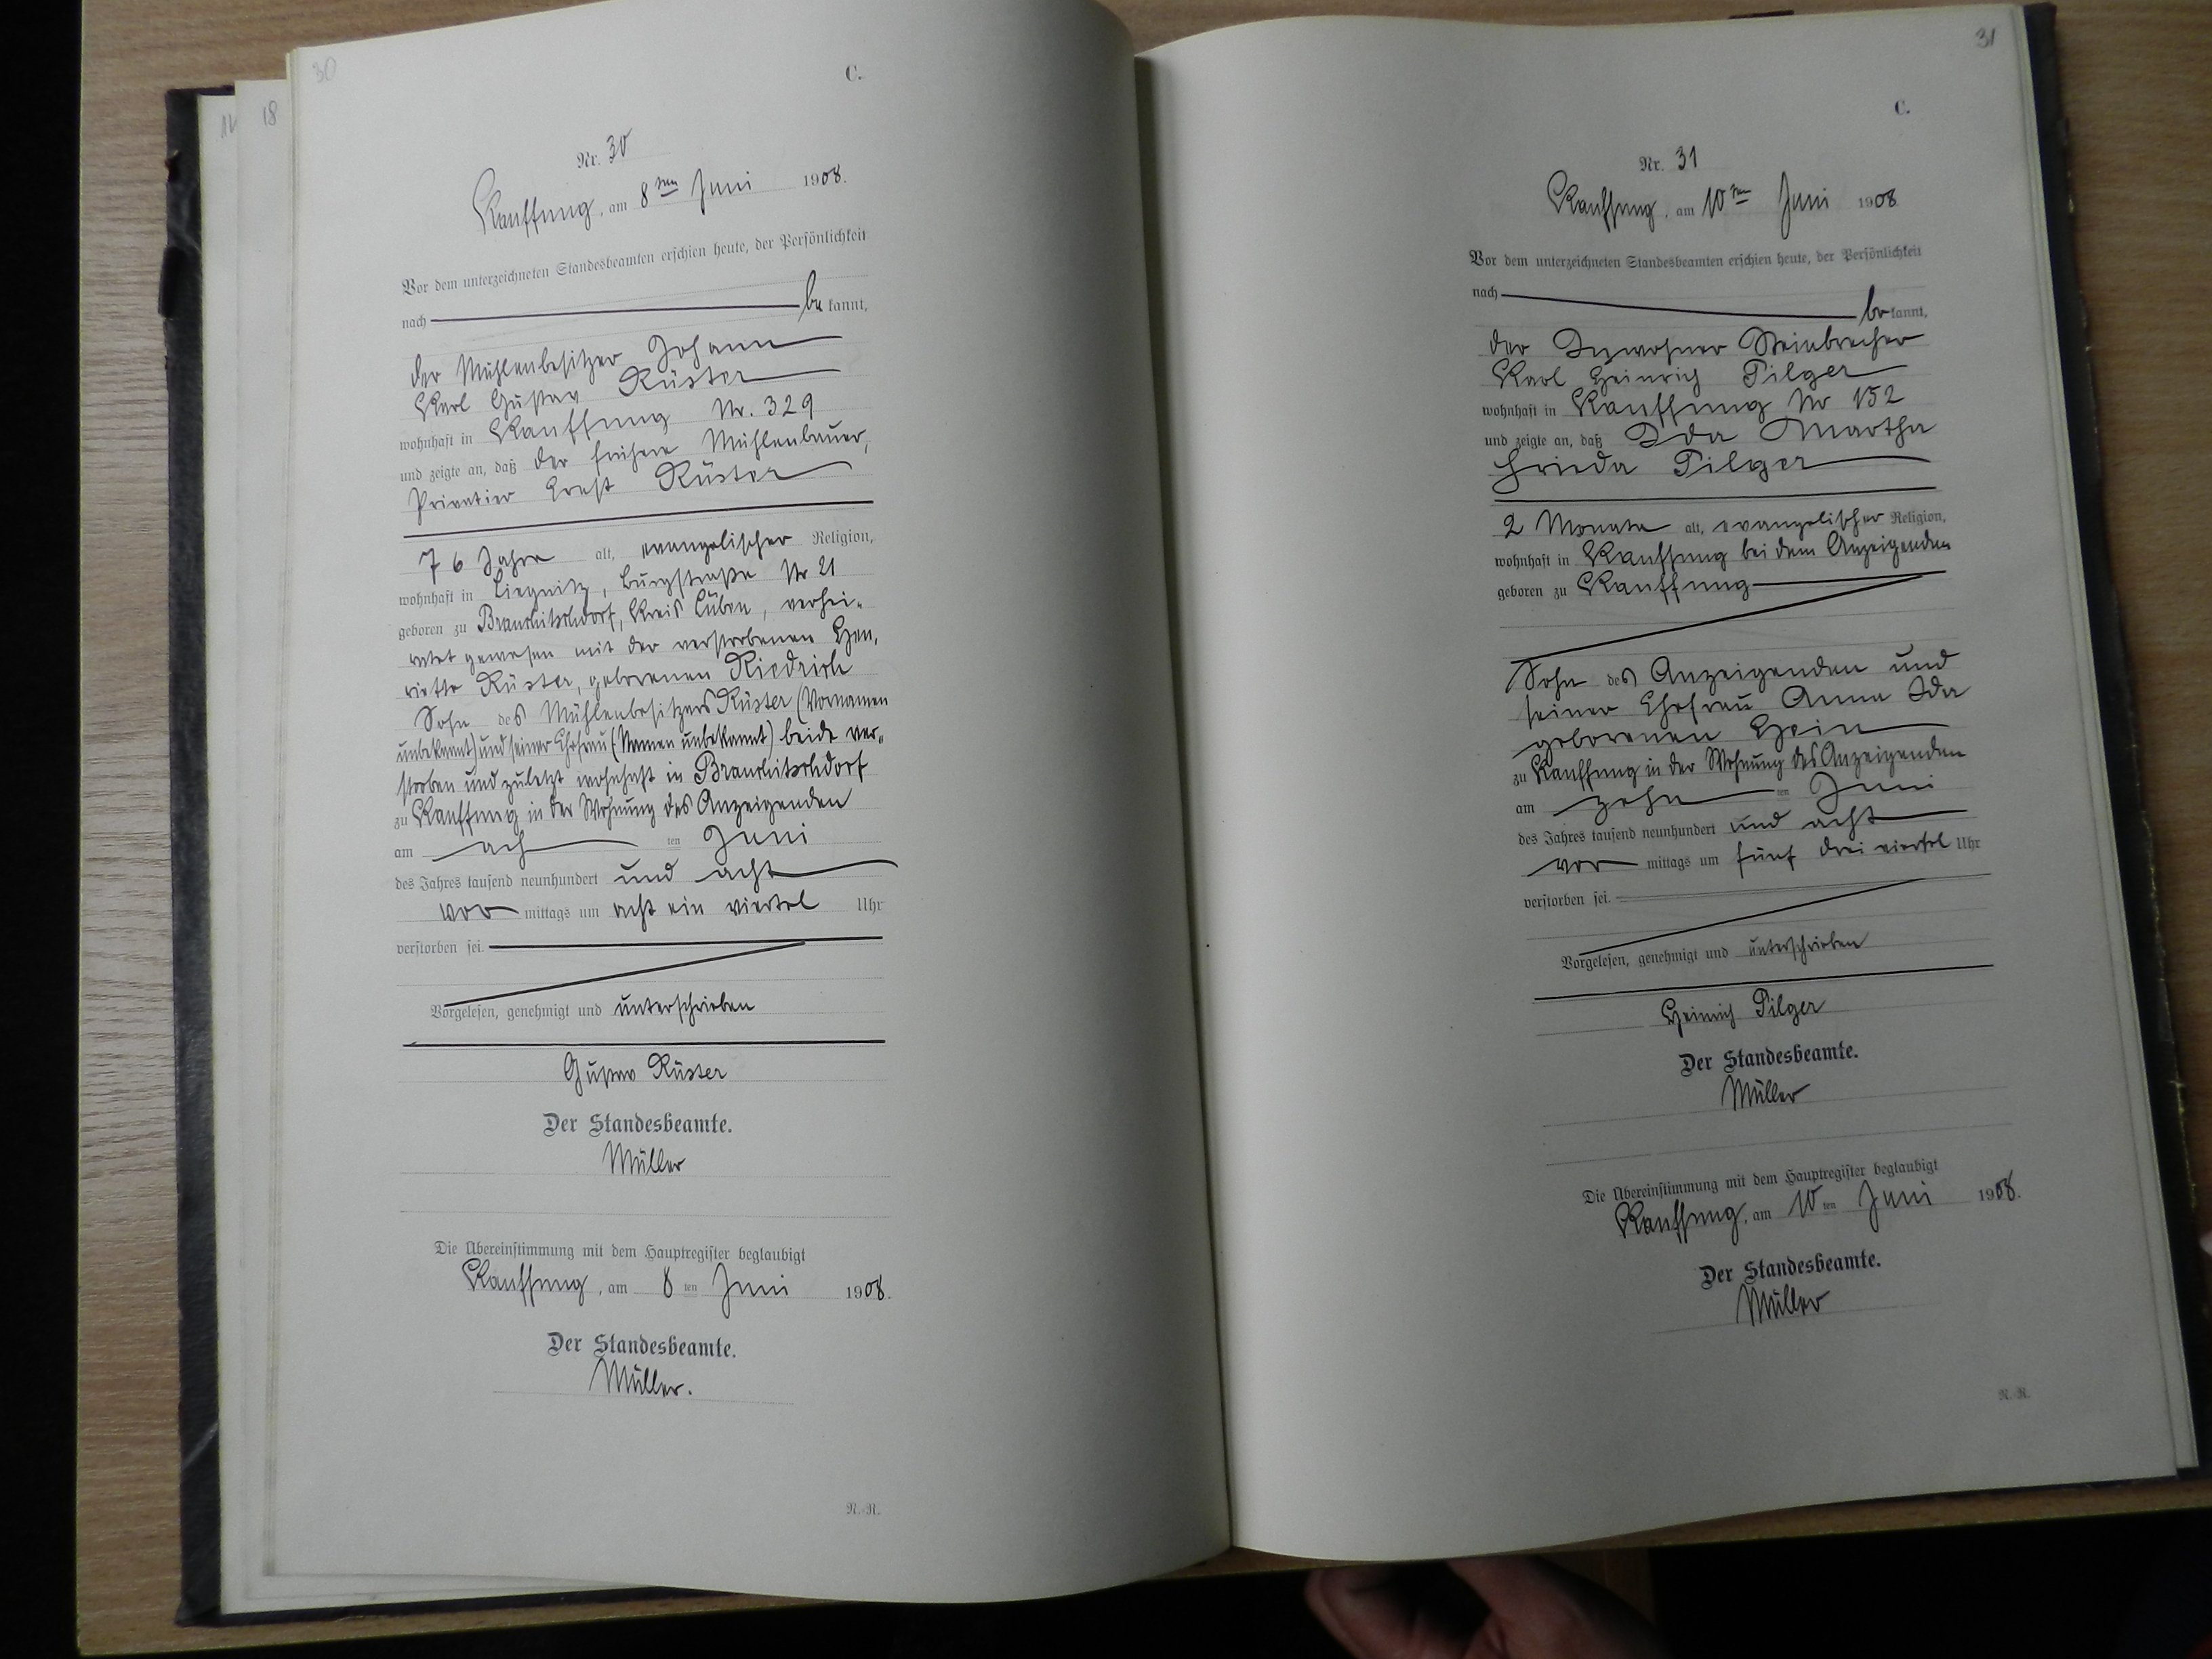 30
18
C.
Nr. 30
Kauffung, am 8ten Juni 1908.
Vor dem unterzeichneten Standesbeamten erschien heute, der Persönlichkeit
nach be kannt,
der Mühlenbesitzer Johann
Karl Gustav Rüster
wohnhaft in Kauffung Nr. 329
und zeigte an, daß der frühere Mühlenbauer,
Privatier Ernst Rüster
76 Jahre alt, evangelischer Religion,
wohnhaft in Liegnitz, Burgstraße Nr 21
geboren zu Brauchitschdorf, Kreis Lüben, verhei-
ratet gewesen mit der verstorbenen Hen-
riette Rüster, geborenen Riedrich
Sohn des Mühlenbesitzers Rüster (Vornamen
unbekannt) und seiner Ehefrau (Namen unbekannt) beide ver-
storben und zuletzt wohnhaft in Brauchitschdorf
zu Kauffung in der Wohnung des Anzeigenden
am ach ten Juni
des Jahres tausend neunhundert und acht
vor mittags um acht ein viertel Uhr
verstorben sei.
Vorgelesen, genehmigt und unterschrieben
Gustav Rüster
Der Standesbeamte.
Müller
Die Übereinstimmung mit dem Hauptregister beglaubigt
Kauffung, am 8 ten Juni 1908.
Der Standesbeamte.
Müller.
N.-R.
31
C.
Nr. 31
Kauffung, am 10ten Juni 1908
Vor dem unterzeichneten Standesbeamten erschien heute, der Persönlichkeit
nach be kannt,
der Inwohner Steinbrecher
Karl Heinrich Pilger
wohnhaft in Kauffung Nr 152
und zeigte an, daß Ida Martha
Frieda Pilger
2 Monate alt, evangelischer Religion,
wohnhaft in Kauffung bei dem Anzeigenden
geboren zu Kauffung
Sohn des Anzeigenden und
seiner Ehefrau Anna Ida
geborenen Hein
zu Kauffung in der Wohnung des Anzeigenden
am zehn ten Juni
des Jahres tausend neunhundert und acht
vor mittags um fünf drei viertel Uhr
verstorben sei.
Vorgelesen, genehmigt und unterschrieben
Heinrich Pilger
Der Standesbeamte.
Müller
Die Übereinstimmung mit dem Hauptregister beglaubigt
Kauffung, am 10 ten Juni 1908.
Der Standesbeamte.
Müller
N.-R.